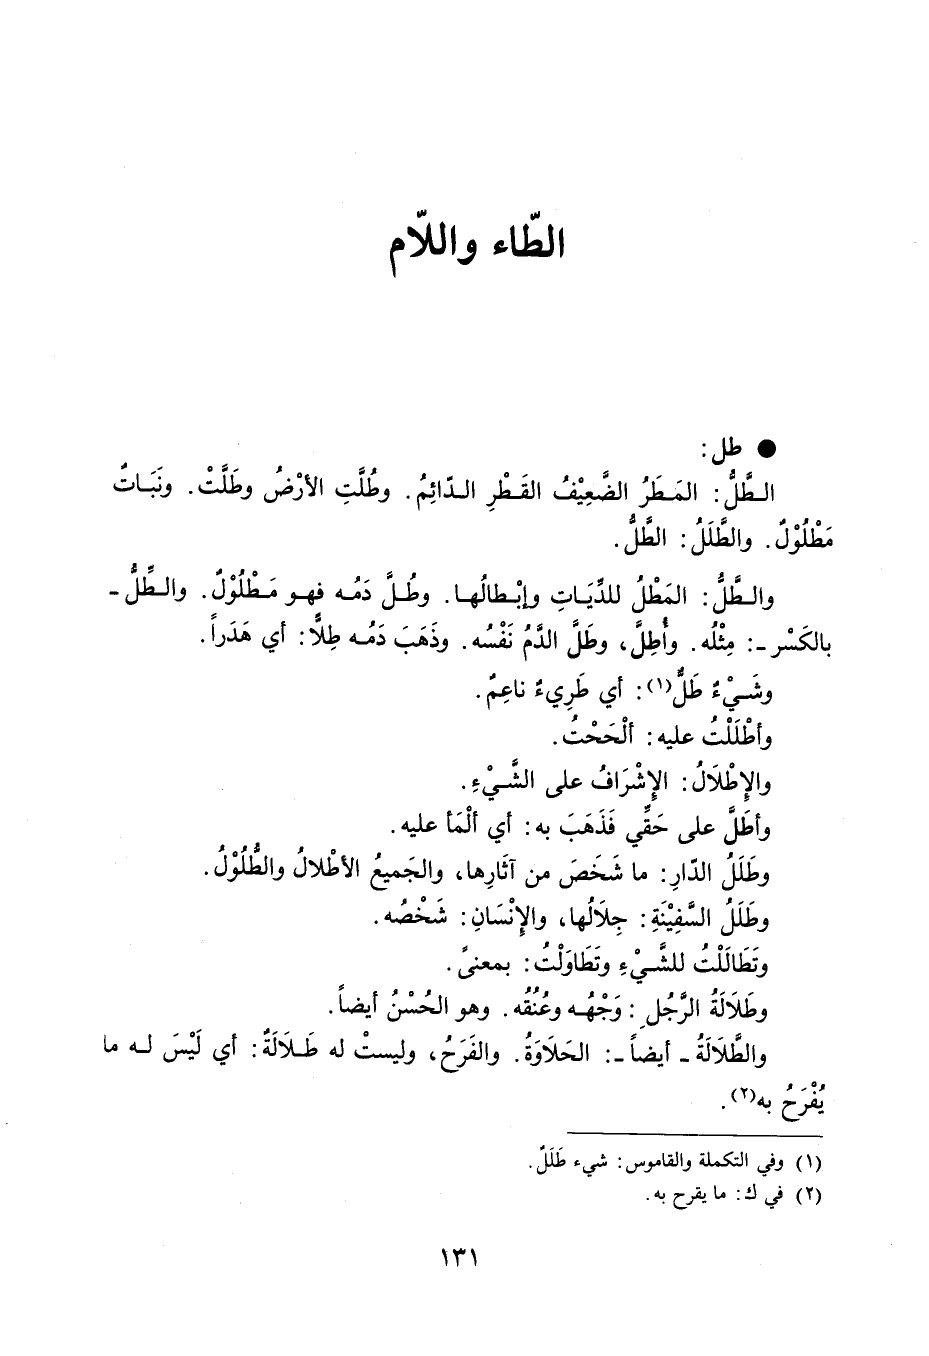 الطّاء واللّام
● طل:
الطَّلُّ: المَطَرُ الضَّعِيْفُ القَطْرِ الدّائِمُ. وطُلَّتِ الأرْضُ وطَلَّتْ. ونَبَاتٌ
مَطْلُوْلٌ. والطَّلَلُ: الطَّلُّ.
والطَّلُّ: المَطْلُ للدِّيَاتِ وإبْطالُها. وطُلَّ دَمُه فهو مَطْلُوْلٌ. والطِّلُّ -
بالكَسْر -: مِثْلُه. وأُطِلَّ، وطَلَّ الدَّمُ نَفْسُه. وذَهَبَ دَمُه طِلًّا: أي هَدَراً.
وشَيْءٌ طَلٌّ(١): أي طَرِيءٌ ناعِمٌ.
وأطْلَلْتُ عليه: ألْحَحْتُ.
والإِطْلَالُ: الإِشْرَافُ على الشَّيْءِ.
وأطَلَّ على حَقِّي فَذَهَبَ به: أي ألْمَأ عليه.
وطَلَلُ الدّارِ: ما شَخَصَ من آثَارِها، والجَميعُ الأطْلالُ والطُّلُوْلُ.
وطَلَلُ السَّفِيْنَةِ: جِلَالُها، والإِنْسَانِ: شَخْصُه.
وتَطَالَلْتُ للشَّيْءِ وتَطَاوَلْتُ: بمعنىً.
وطَلَالَةُ الرَّجُلِ: وَجْهُه وعُنُقُه. وهو الحُسْنُ أيضاً.
والطَّلَالَةُ - أيضاً -: الحَلَاوَةُ. والفَرَحُ، وليستْ له طَلَالَةٌ: أي لَيْسَ له ما
يُفْرَحُ به(٢).
(١) وفي التكملة والقاموس: شيء طَلَلٌ.
(٢) في ك: ما يقرح به.
١٣١